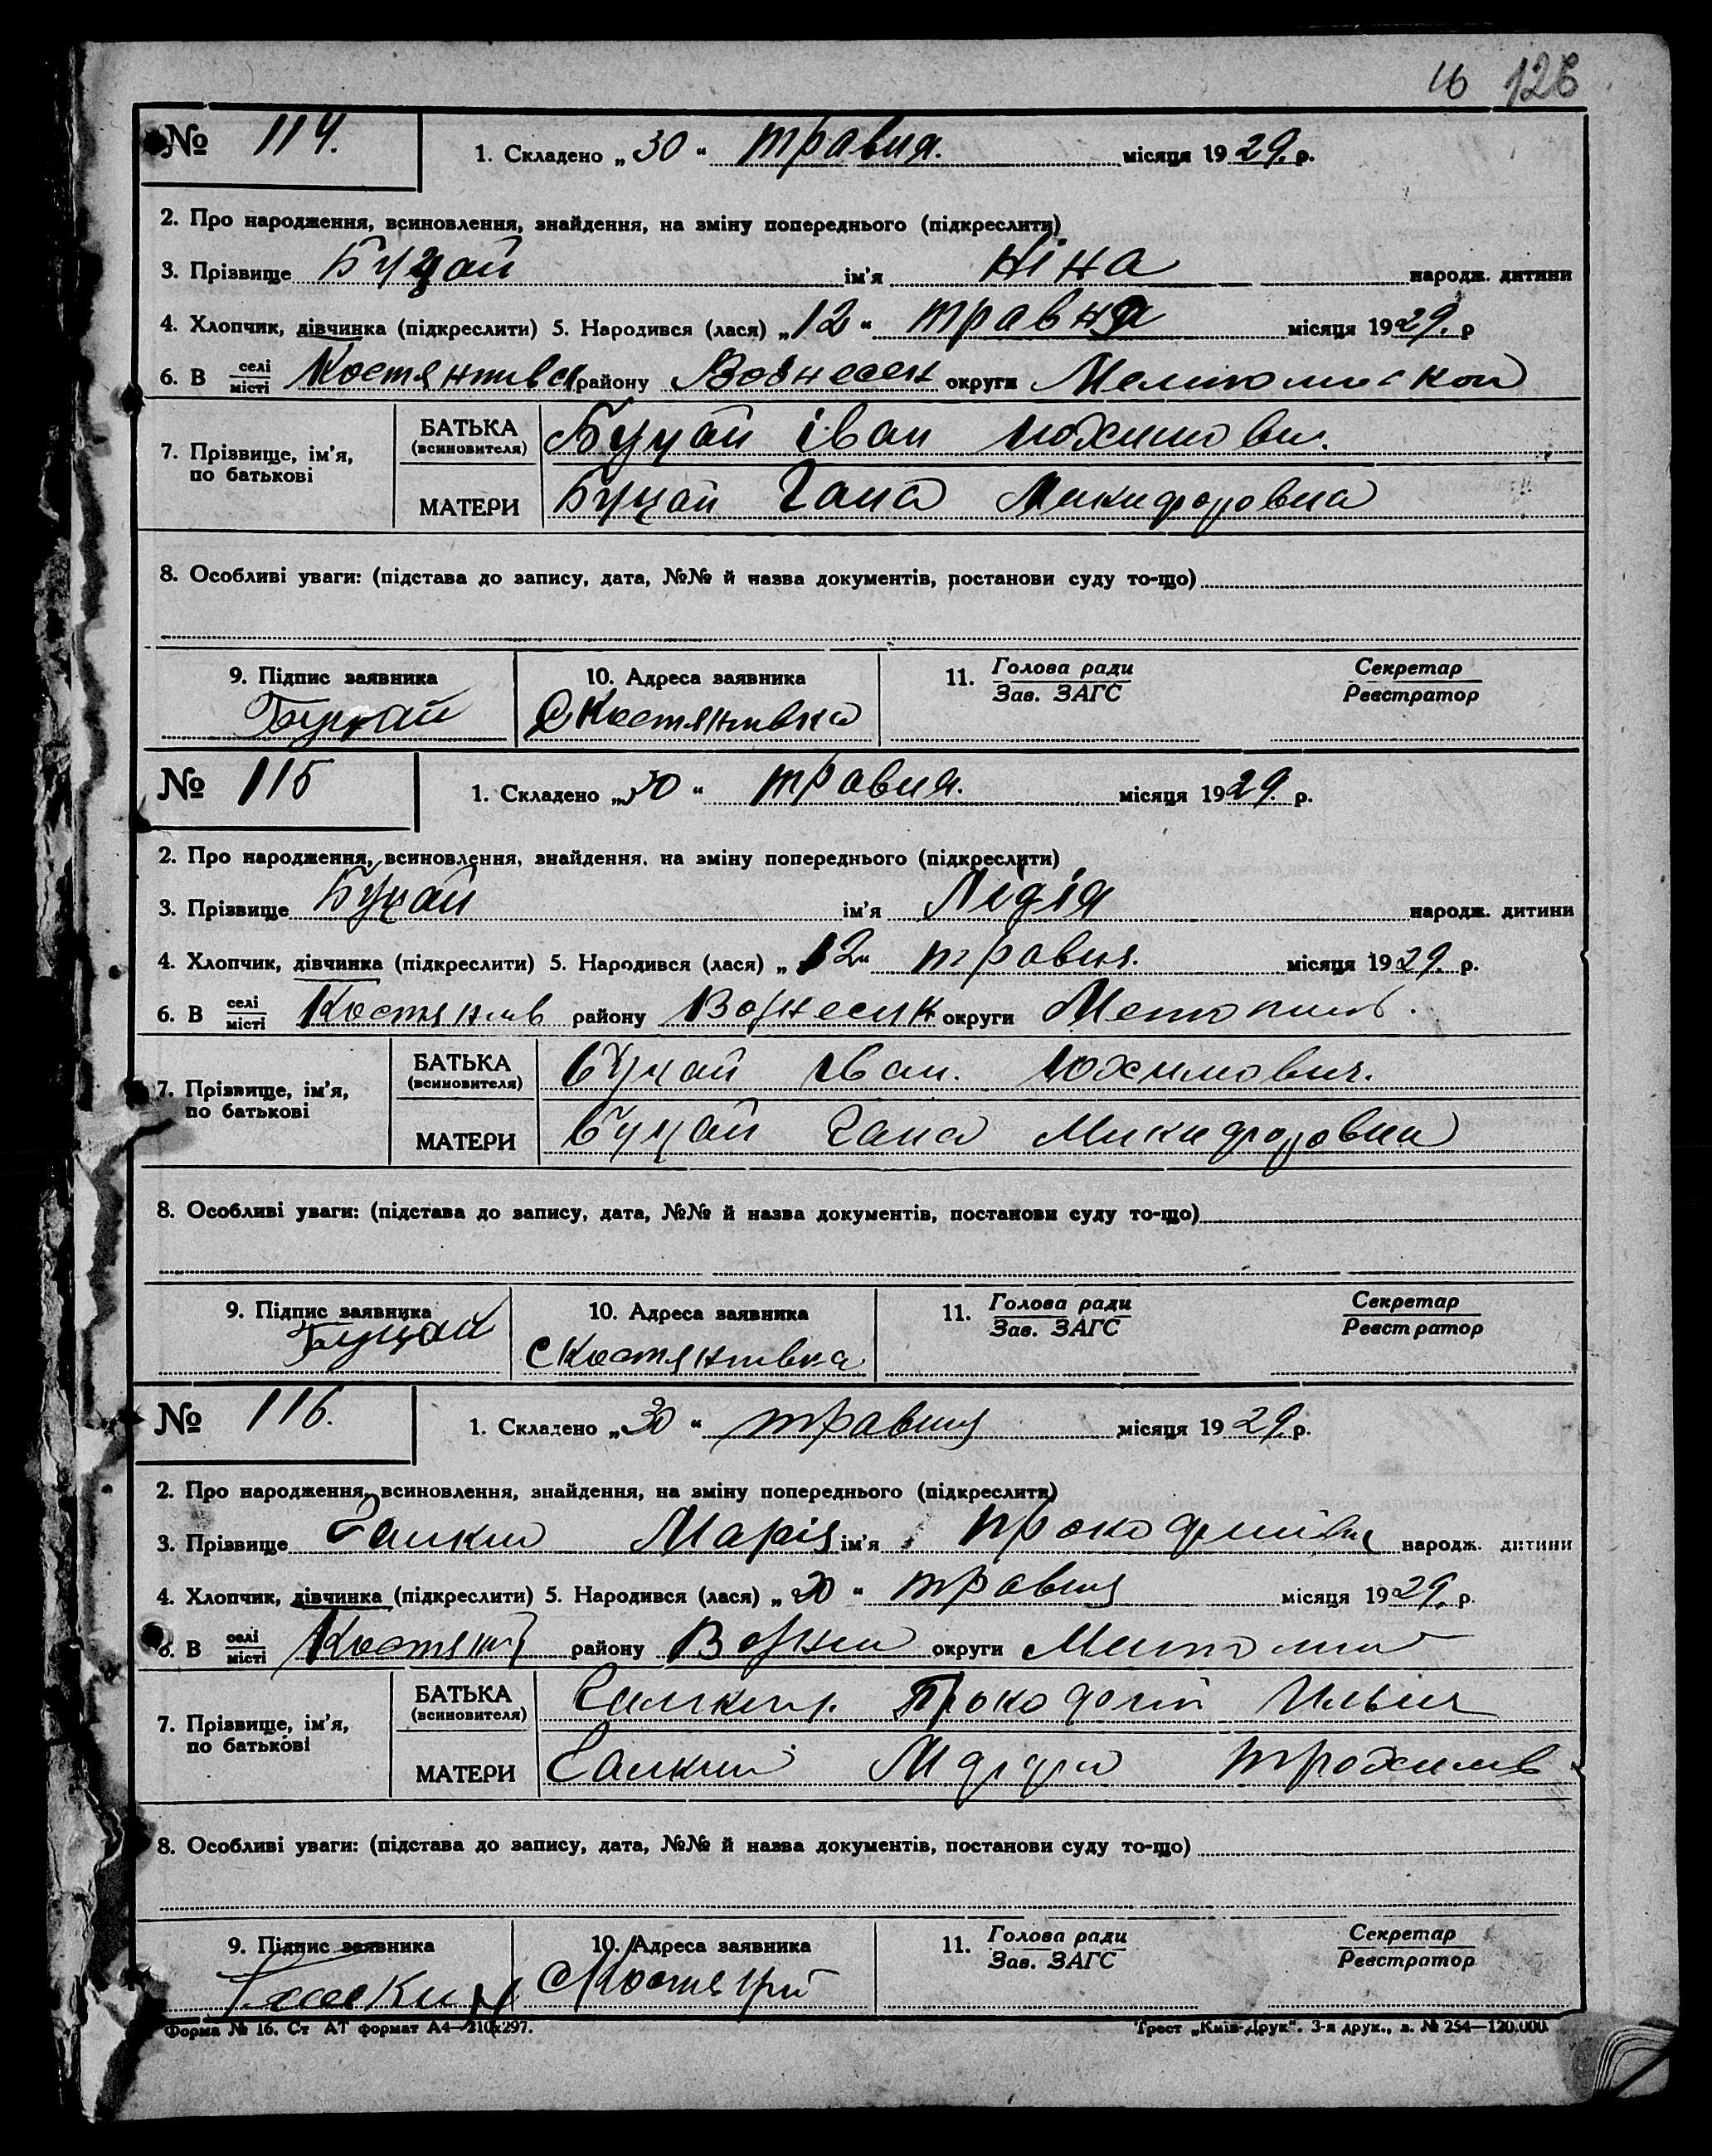 16 126
№ 114. 1. Складено „30“ травня. місяця 1929. р.
2. Про народження, всиновлення, знайдення, на зміну попереднього (підкреслити)
3. Прізвище Буцай ім'я Ніна народж. дитини
4. Хлопчик, дівчинка (підкреслити) 5. Народився (лася) „12“ травня місяця 1929. р
6. В селі/місті Костянтивск району Вознесен округи
7. Прізвище, ім'я, по батькові БАТЬКА (всиновителя) Буцай Іван Юхимови.
МАТЕРИ Буцай Гана Микифоровна
8. Особливі уваги: (підстава до запису, дата, №№ й назва документів, постанови суду то-що)
9. Підпис заявника 10. Адреса заявника 11. Голова ради/Зав. ЗАГС Секретар/Реєстратор
Буцай С Костянтивка
№ 115 1. Складено „30“ травня. місяця 1929. р.
2. Про народження, всиновлення, знайдення, на зміну попереднього (підкреслити)
3. Прізвище Буцай ім'я Лідія народж. дитини
4. Хлопчик, дівчинка (підкреслити) 5. Народився (лася) „12“ травня. місяця 1929. р.
6. В селі/місті Костянтив району округи
7. Прізвище, ім'я, по батькові БАТЬКА (всиновителя) Буцай Іван. Юхимович.
МАТЕРИ Буцай Гана Микифоровна
8. Особливі уваги: (підстава до запису, дата, №№ й назва документів, постанови суду то-що)
9. Підпис заявника 10. Адреса заявника 11. Голова ради/Зав. ЗАГС Секретар/Реєстратор
Буцай С Костянтивка
№ 116. 1. Складено „30“ травня місяця 1929. р.
2. Про народження, всиновлення, знайдення, на зміну попереднього (підкреслити)
3. Прізвище Марія ім'я народж. дитини
4. Хлопчик, дівчинка (підкреслити) 5. Народився (лася) „20“ травня місяця 1929. р.
6. В селі/місті району округи
7. Прізвище, ім'я, по батькові БАТЬКА (всиновителя) Прокофий
МАТЕРИ
8. Особливі уваги: (підстава до запису, дата, №№ й назва документів, постанови суду то-що)
9. Підпис заявника 10. Адреса заявника 11. Голова ради/Зав. ЗАГС Секретар/Реєстратор
Форма № 16. Ст АТ формат А4—210x297. Трест „Київ-Друк“. 3-я друк., з. № 254—120.000.